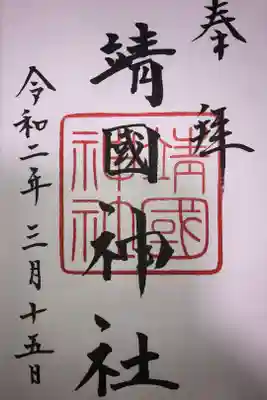 奉拝
靖國神社
靖國神社
令和二年三月十五日